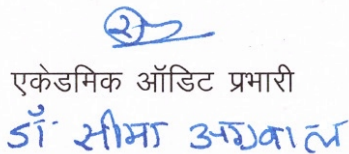 एकेडमिक ऑडिट प्रभारी
डॉ सीमा अग्रवाल